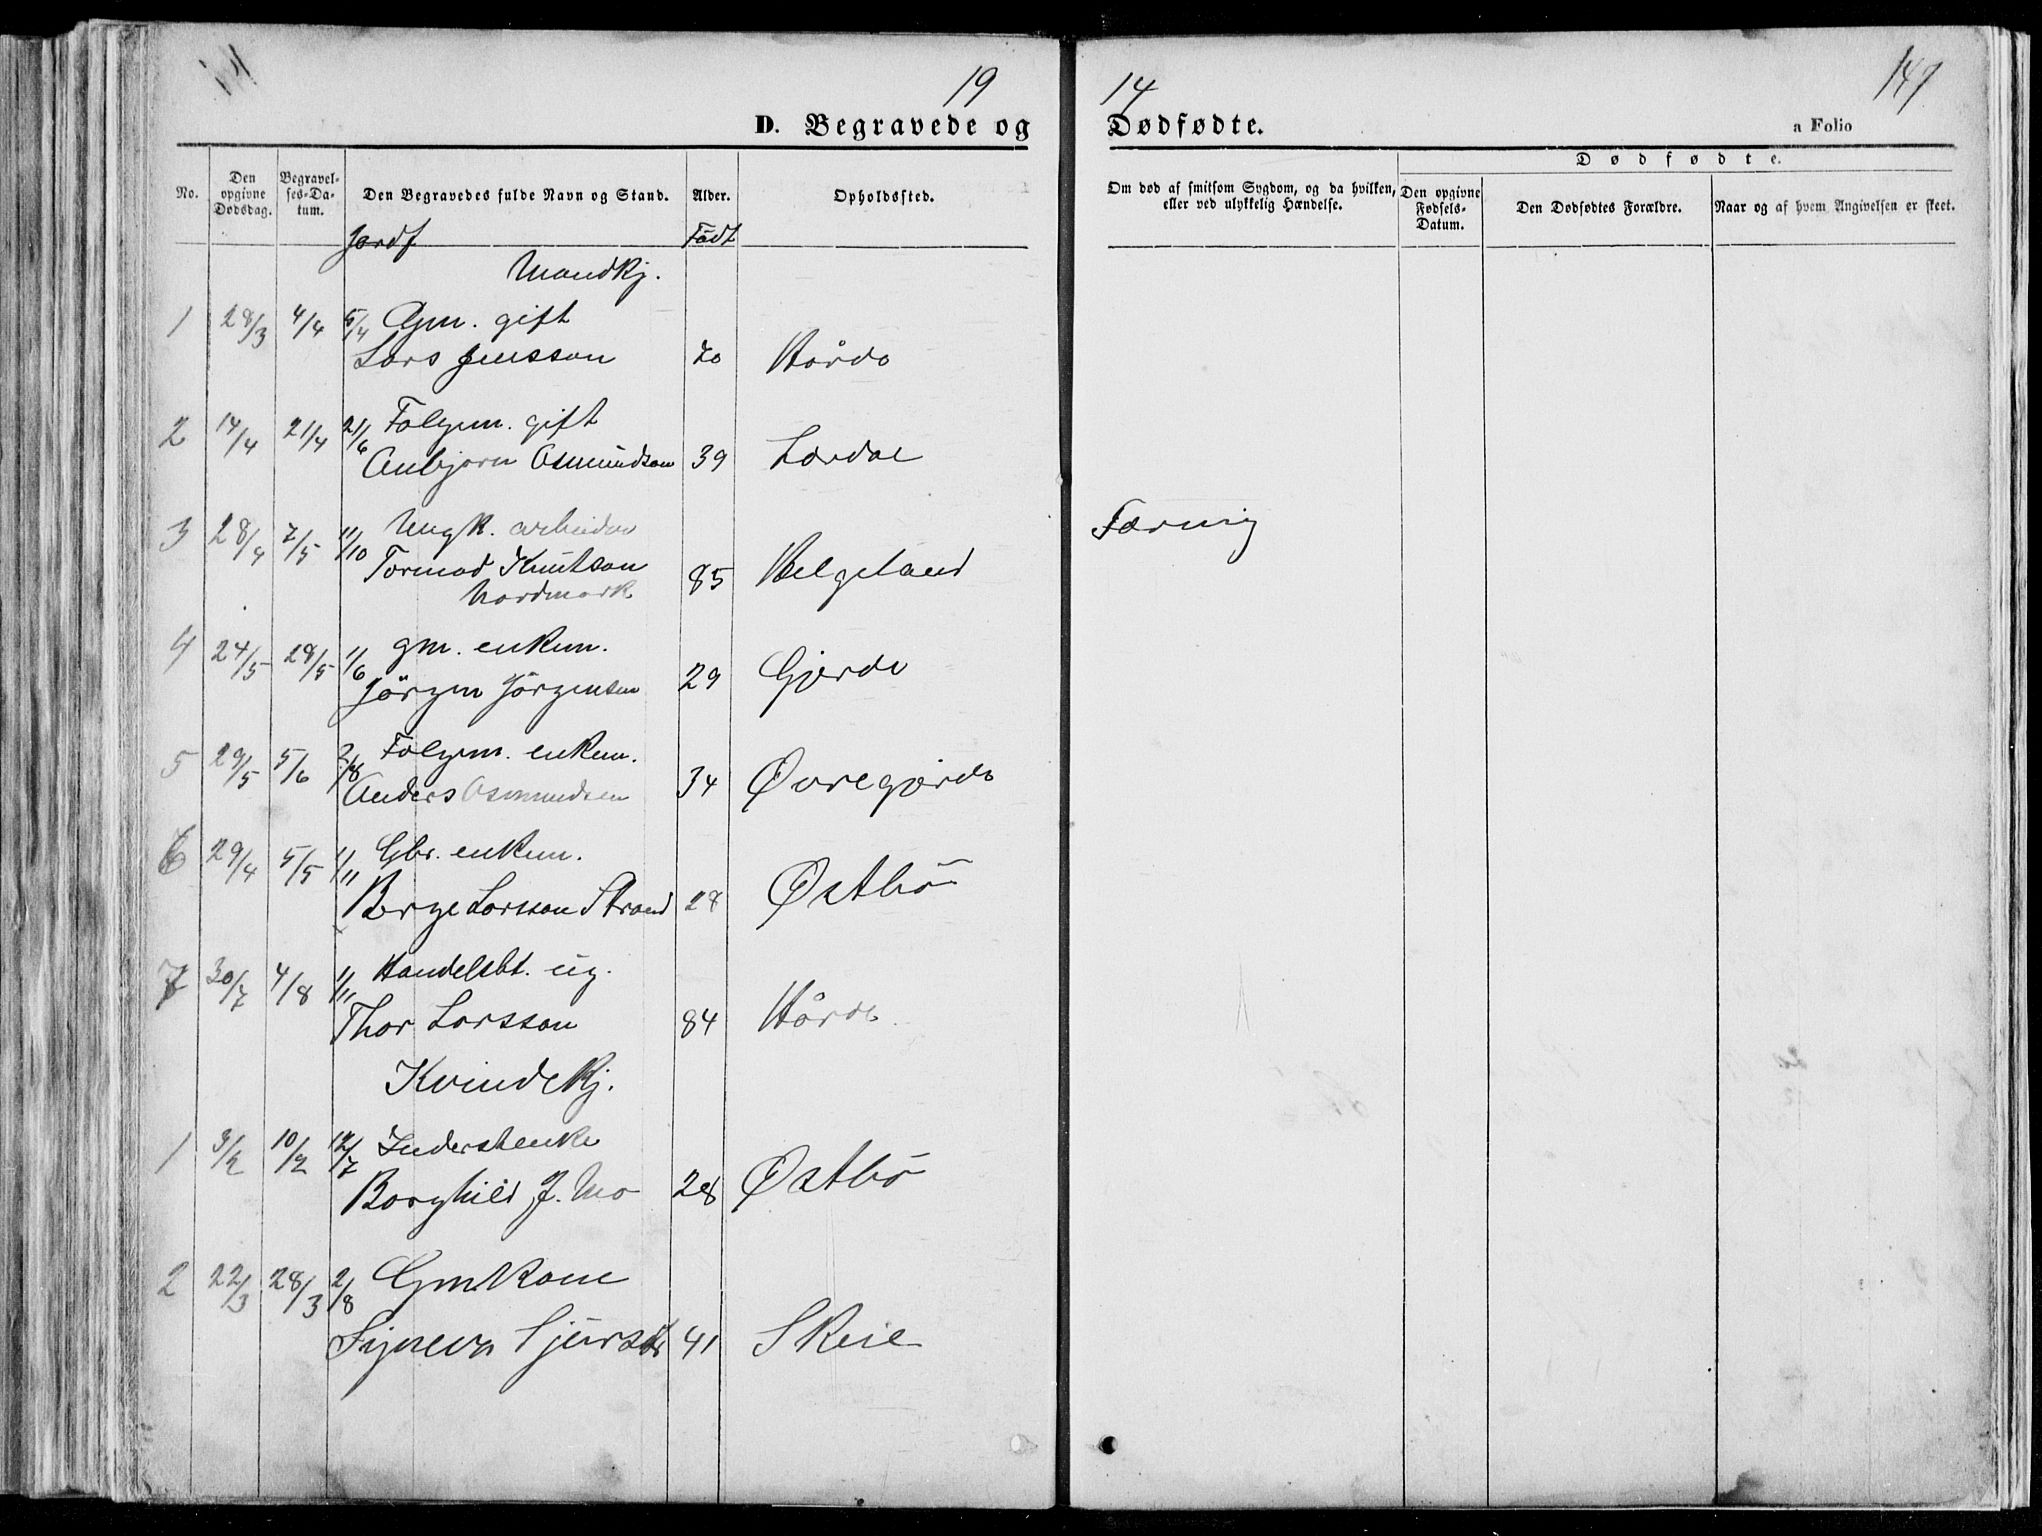 19
14
147
D. Begravede og
Dødfødte.
a Folio
No.
Den opgivne Dødsdag.
Begravelses-Datum.
Den Begravedes fulde Navn og Stand.
Alder.
Opholdssted.
Om død af smitsom Sygdom, og da hvilken,
eller ved ulykkelig Hændelse.
Dødfødte.
Den opgivne Fødsels-Datum.
Den Dødfødtes Forældre.
Naar og af hvem Angivelsen er skeet.
Jordf
Født
Mandkj.
1 28/3 4/4 5/4 Gm. gift
Lars Jensson 20
2 14/4 21/4 21/6 Folgem. gift
Anbjørn Osmundson 39 Lærdal
3 28/4 7/5 11/10 Ungk. arbeider
Tormod Knutson 85 Helgeland Tæring
Nordmark
4 24/5 28/5 1/6 gm. enkem.
Jörgen Jörgensen 29 Gjerde
5 29/5 5/6 2/8 Folgem. enkem.
Anders Osmundsen 34 Øvregjerde
6 29/4 5/5 1/11 Gbr. enkem.
Berge Larsson Strand 28 Østbö
7 30/7 4/8 1/11 Handelsbt. ug.
Thor Larsson 84
Kvindekj.
1 3/2 10/2 12/7 Inderstenke
Borghild J. Mo 28 Østbö
2 22/3 28/3 2/8 Gm. Kone
Signeva Sjursdtr 41 Skeie